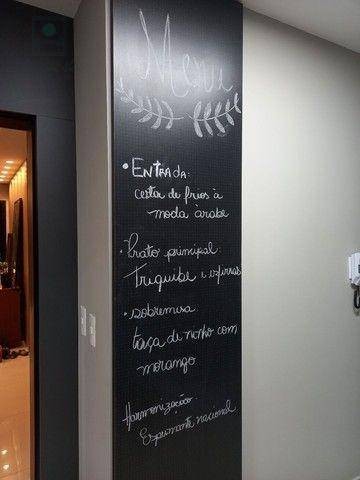 Menu
• ENTRADA:
cesta de frios à
moda árabe
• Prato principal:
Triquibe e esfirras
• Sobremesa:
taça de ninho com
morango
Harmonização:
Espumante nacional